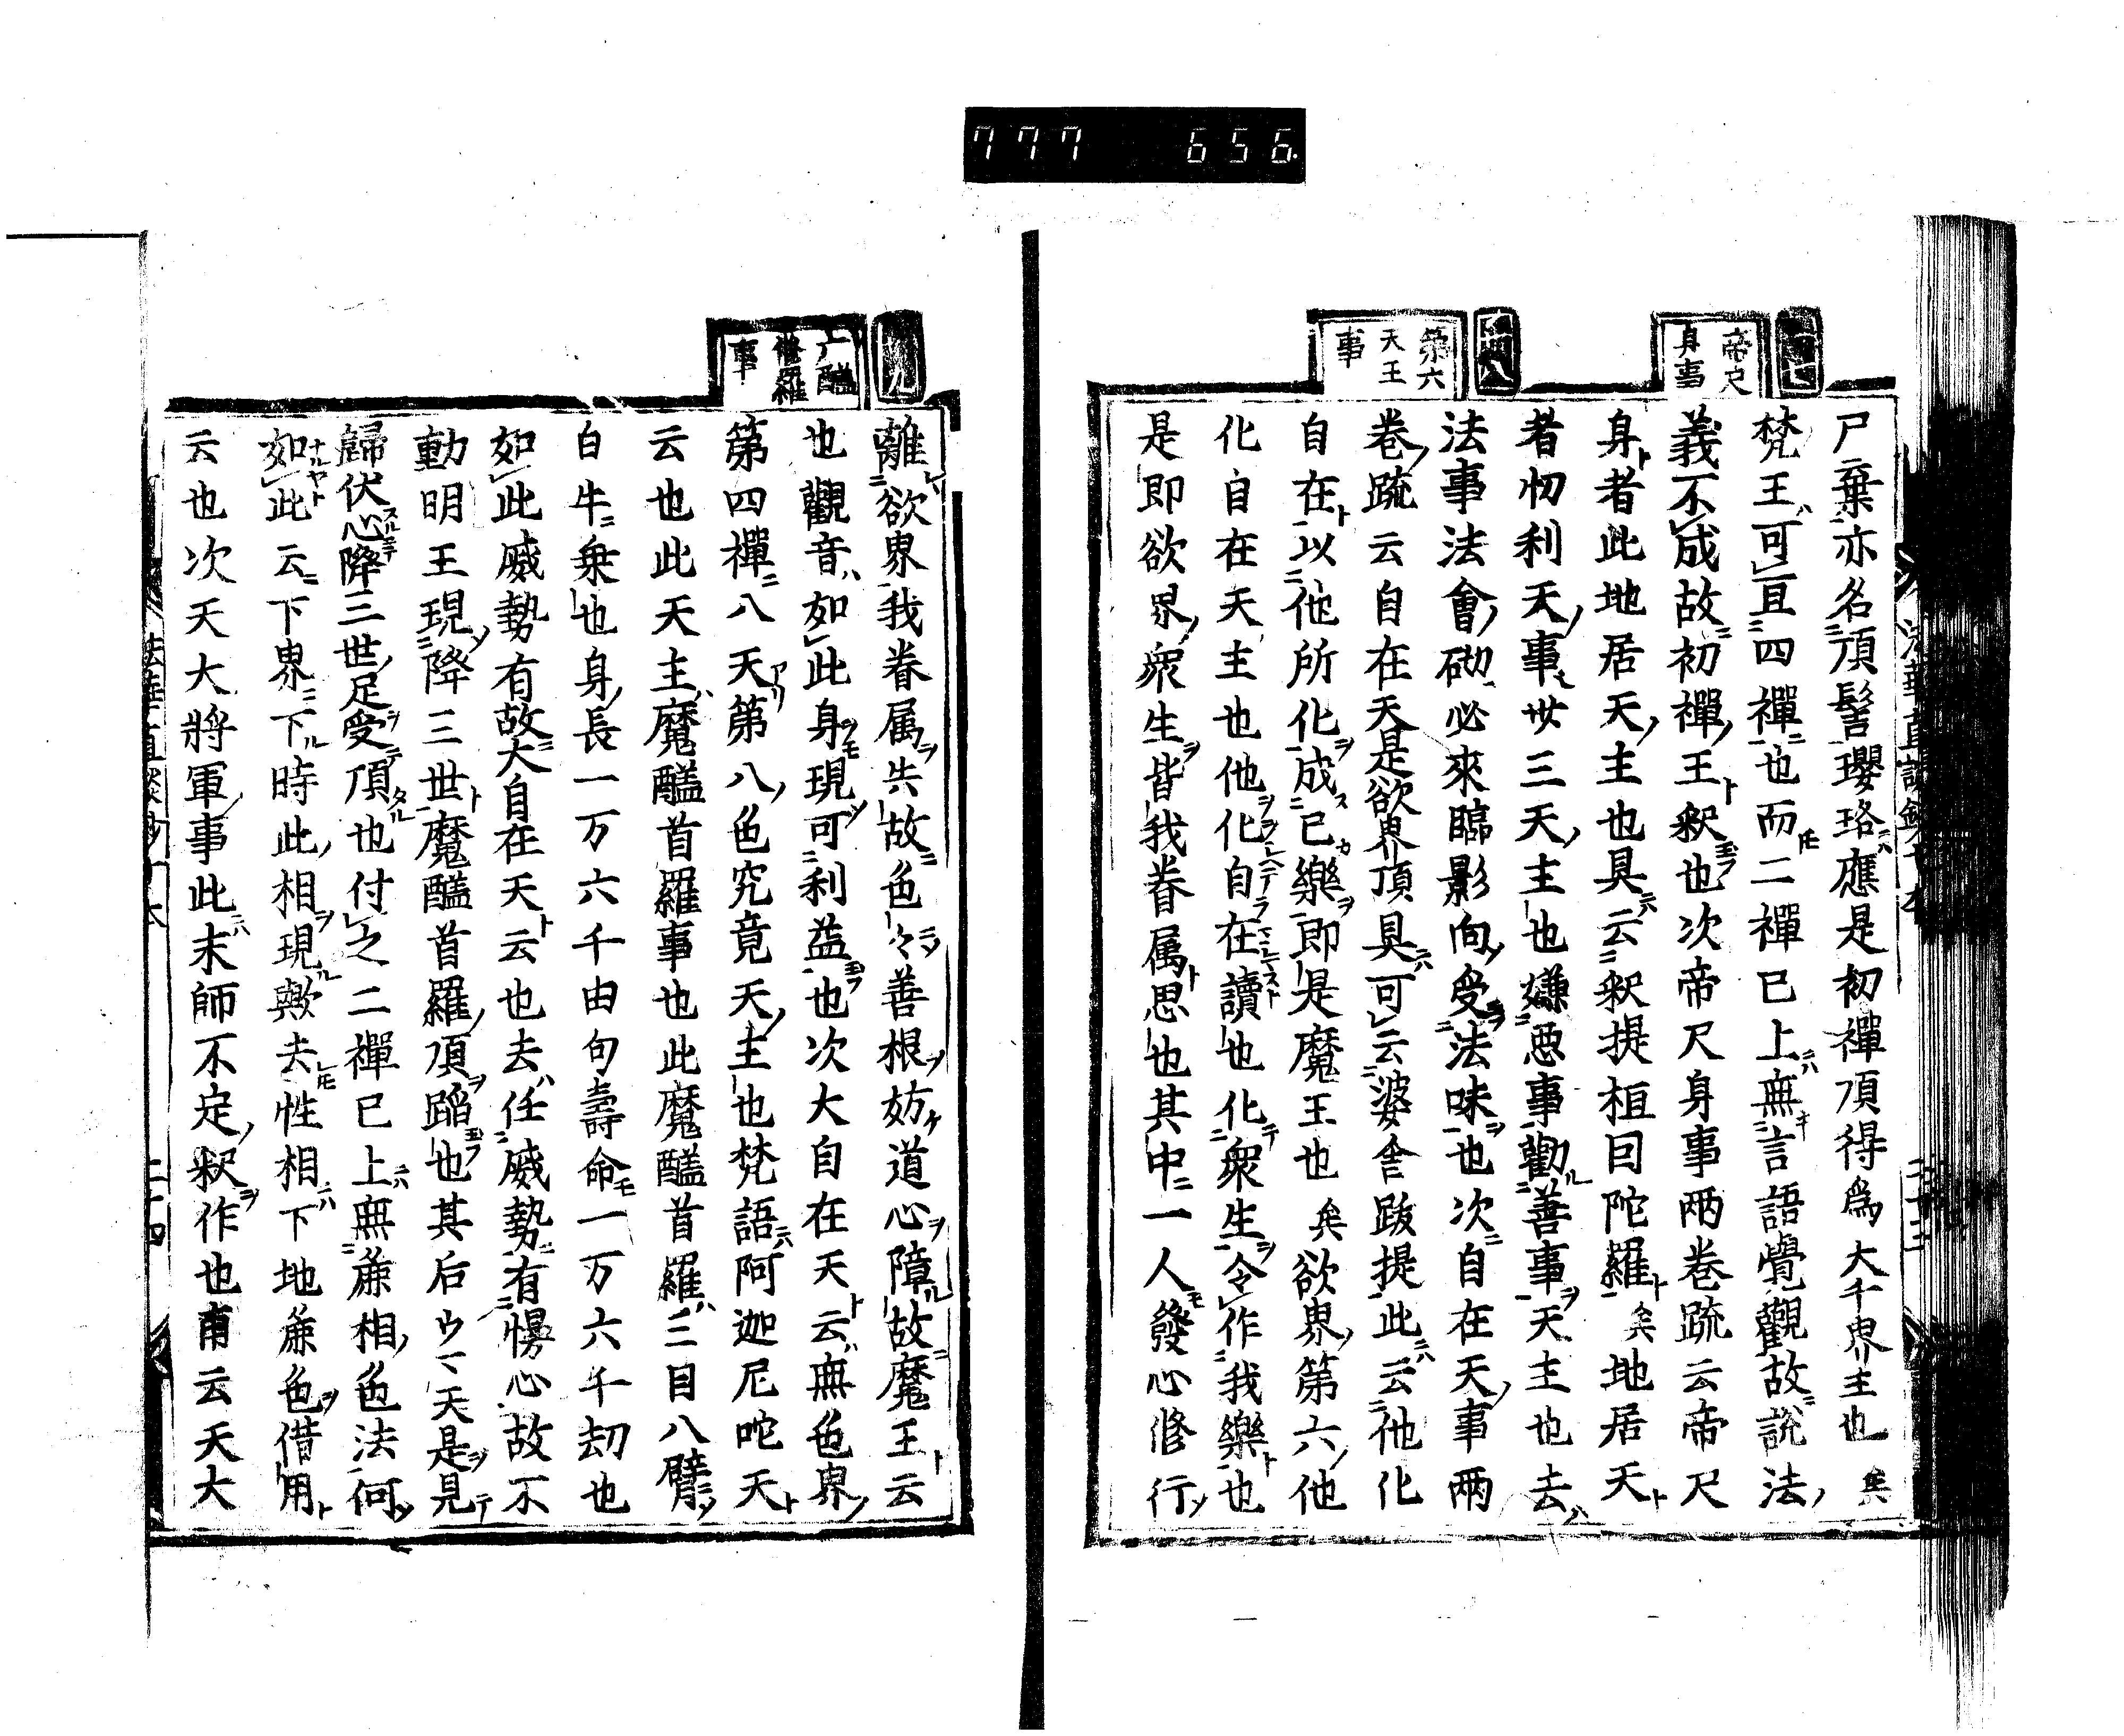 777 656
帝尺
身事
尸棄亦名頂髻瓔珞應是初禪頂得爲大千界主也矣
梵王可亘四禪也而二禪已上無言語覺觀故説法
義不成故初禪王釈也次帝尺身事两巻疏云帝尺
身者此地居天主也具云釈提桓因陀羅矣地居天
者忉利天事丗三天主也嫌悪事勸善事天主也去
法事法會砌必來臨影向受法味也次自在天事两
第六
天王
事
巻疏云自在天是欲界頂具可云婆舎跋提此云他化
自在以他所化成已樂即是魔王也矣欲界第六他
化自在天主也他化自在讀也化衆生令作我樂也
是即欲界衆生皆我眷属思也其中一人發心修行
離欲界我眷属失故色々善根妨道心障故魔王云
也觀音如此身現可利益也次大自在天云無色界
广醯
修羅
事
第四禪八天第八色究竟天主也梵語阿迦尼吒天
云也此天主魔醯首羅事也此魔醯首羅三目八臂
白牛乗也身長一万六千由旬壽命一万六千刧也
如此威勢有故大自在天云也去任威勢有慢心故不
動明王現降三世魔醯首羅頂蹈也其后ウ丶天是見
歸伏心降三世足受頂也付之二禪已上無麁相色法何
如此云下界下時此相現歟去性相下地麁色借用
云也次天大將軍事此末師不定釈作也甫云天大